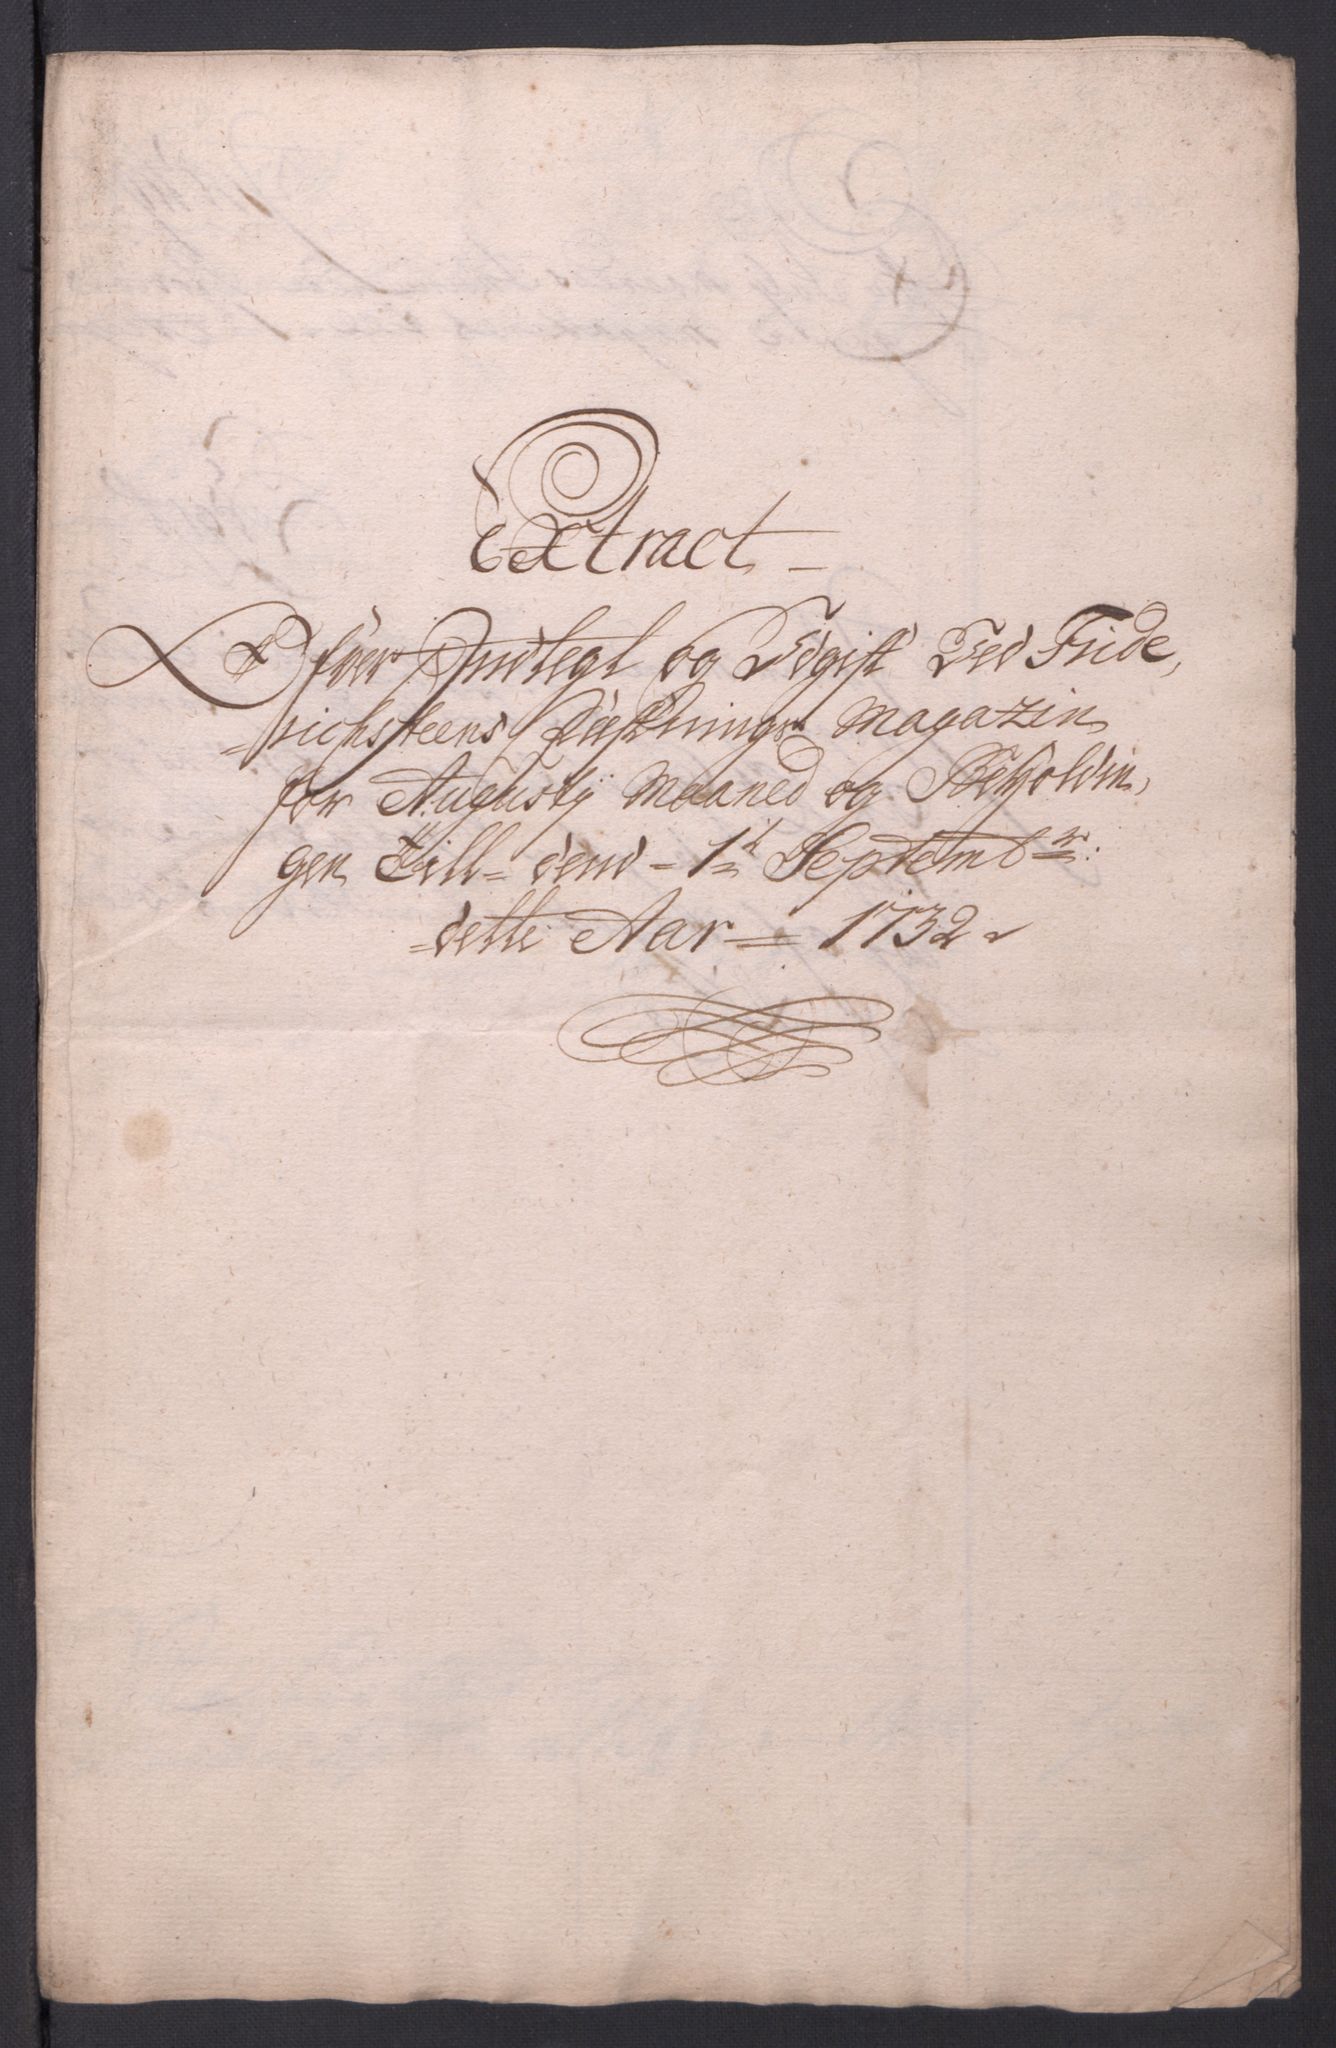 Extract
Ofver Indtegt og Udgift Ved Fride,
=richsteens Fæstnings Magazin
for Augusty Maaned og Beholdin,
gen Till= dend - 1ᵗ Septembʳ:
=dette Aar = 1732